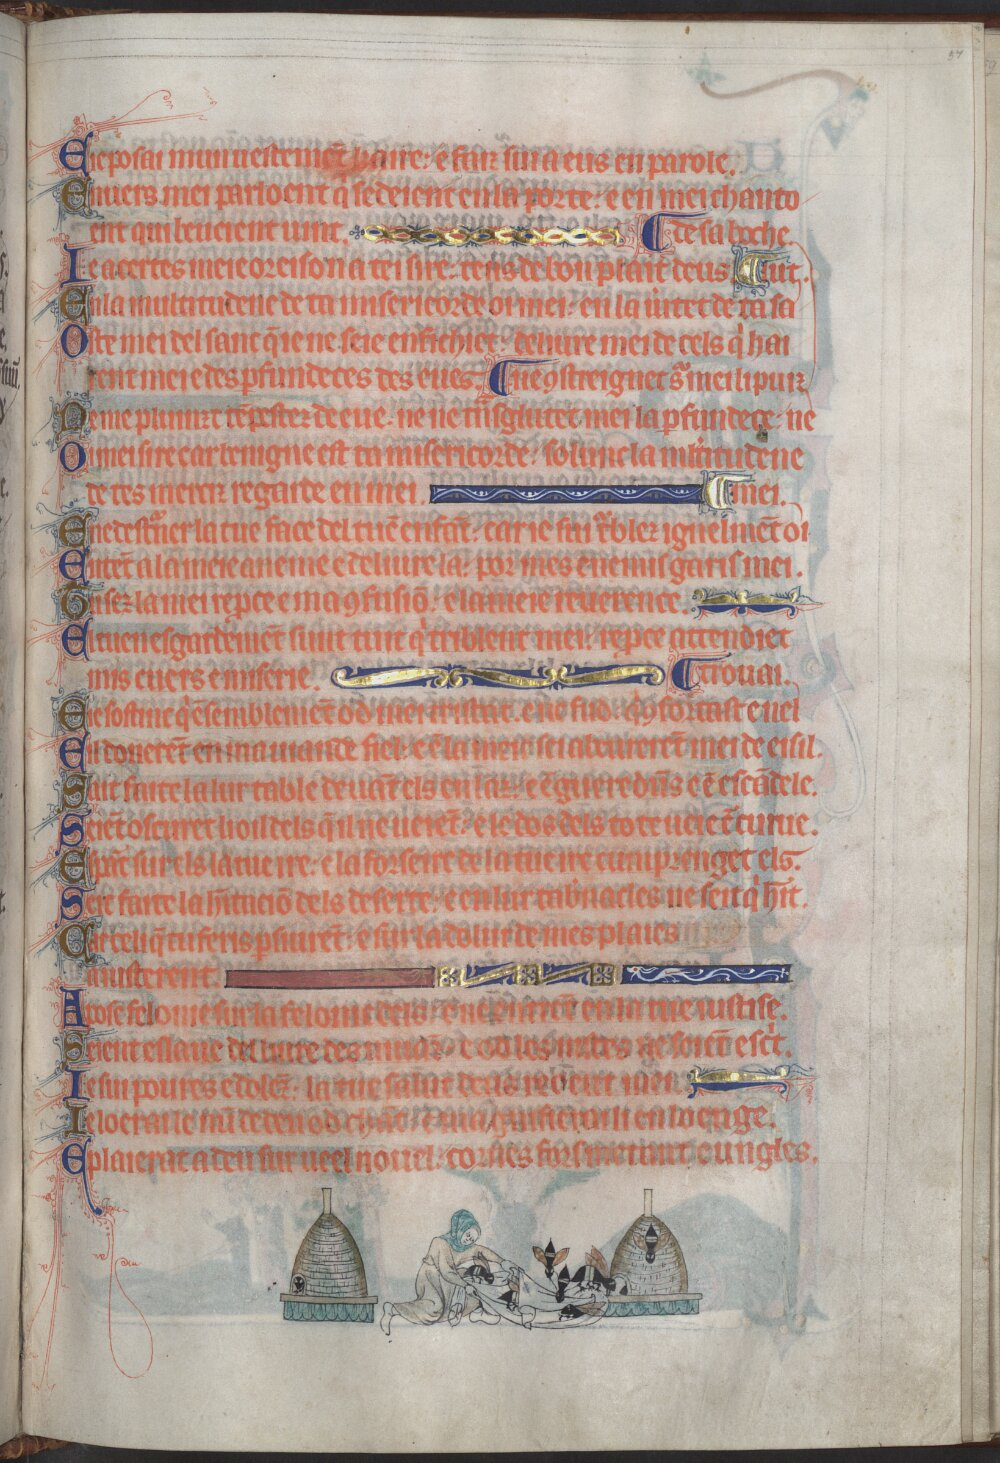 57
E ie posai mun uestement haire: e fait sui a eus en parole.
E nuers mei parloent q̄ sedeient en la porte: e en mei chanto
ent qui beueient uint. de sa boche
I e acertes meie oreison a tei sire: tens de bon plait deus tuit.
E n la multitudene de ta misericorde oi mei: en la uitet de ta sa
O ste mei del fanc q̄ ie ne seie enfichiet: deliure mei de cels q̍ hai
rent mei e des pfundeces des eues. ne 9streignet s̄ mei li puiz
N e me plunizt tēpestez de eue. ne ne trāsglutet mei la pfundece: ne
O i mei sire car benigne est ta misericorde: solunc la multitudene
de tes merciz regarde en mei. mei.
E ne destur̄ner la tue face del tuen enfāt: car ie sui trublez igneluement oi
E ntēt a la meie aneme e deliure la: por mes enemis garis mei.
T u sez la mei repce e ma 9fusiō: e la meie reuerence.
E l tuen esgardement sunt tuit q̍ triblent mei: repce attendiet
mis cuers e miserie. trouai.
E ie sostinc q̍ ensemblement od mei tristast. e ne fud. e q̍ 9fortast e nel
E il donerēt en ma uiande fiel: e ē la meie sei abeurerēt mei de eisil.
S ait faite la lur table deuāt els en laz: e ē gueredūs e ē escādele.
S eiēt oscuret li oil dels q̄ il ne ueiēt: e le dos dels tote ueie ē curue.
E spāt sur els la tue ire: e la forsenre de la tue ire cumprenget els.
S eie faite la hītaciō dels deserte: e en lur tabnacles ne seit q̍ hīt.
C ar celi q̄ tu feris psiurēt: e sur la dolur de mes plaies
aiusterent.
A pose felonie sur la felonie dels: e ne entrent en la tue iustise.
S eient esfaue del liure des uiuāz: e od les iustes ne seient escit.
I e sui poures e dolēz: la tue salut deus receut mei.
I e loerai le nū de deu od chant: e magnifierai li en loenge.
E plaierat a deu sur ueel nouel. cornes forsmetant e ungles.